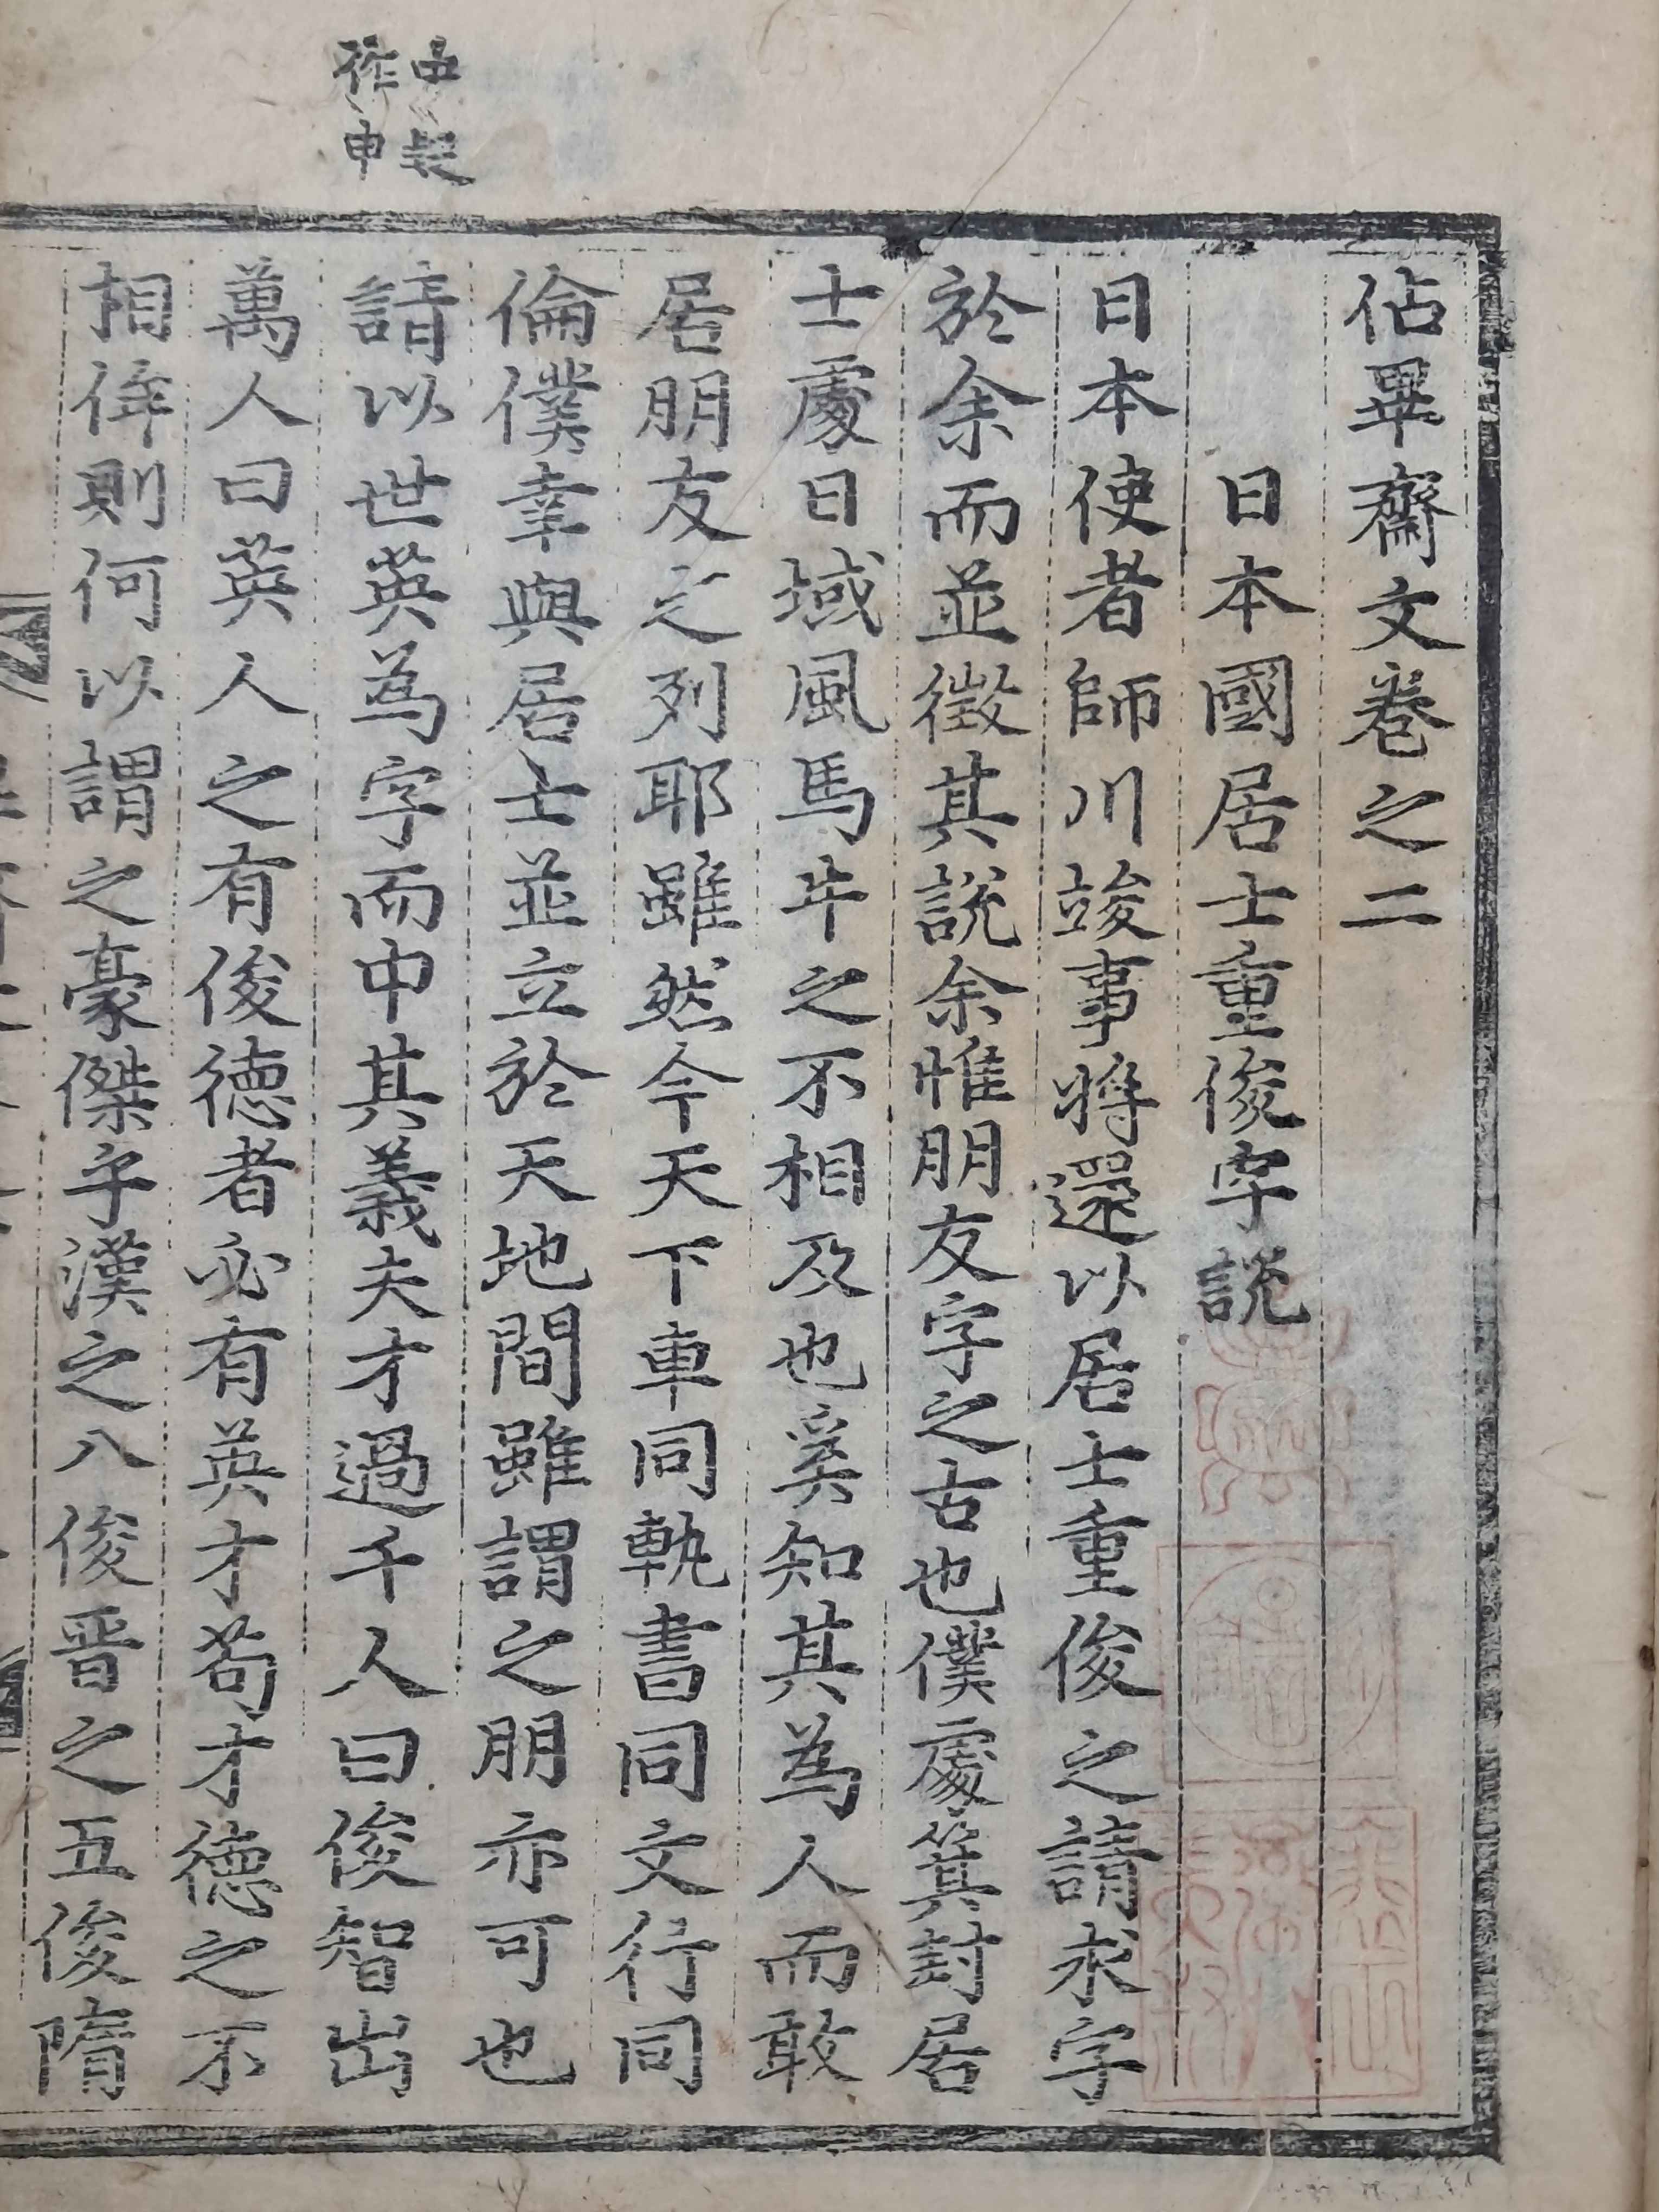 中疑
作申
佔畢齋文卷之二
日本國居士重俊字說
日本使者師川竣事將還以居士重俊之請求字
於余而並徵其說余惟朋友字之古也僕處箕封居
士處日域風馬牛之不相及也奚知其爲人而敢
居朋友之列耶雖然今天下車同軌書同文行同
倫僕幸與居士並立於天地間雖謂之朋亦可也
請以世英爲字而中其義夫才過千人曰俊智出
萬人曰英人之有俊德者必有英才苟才德之不
相侔則何以謂之豪傑乎漢之八俊晋之五俊隋